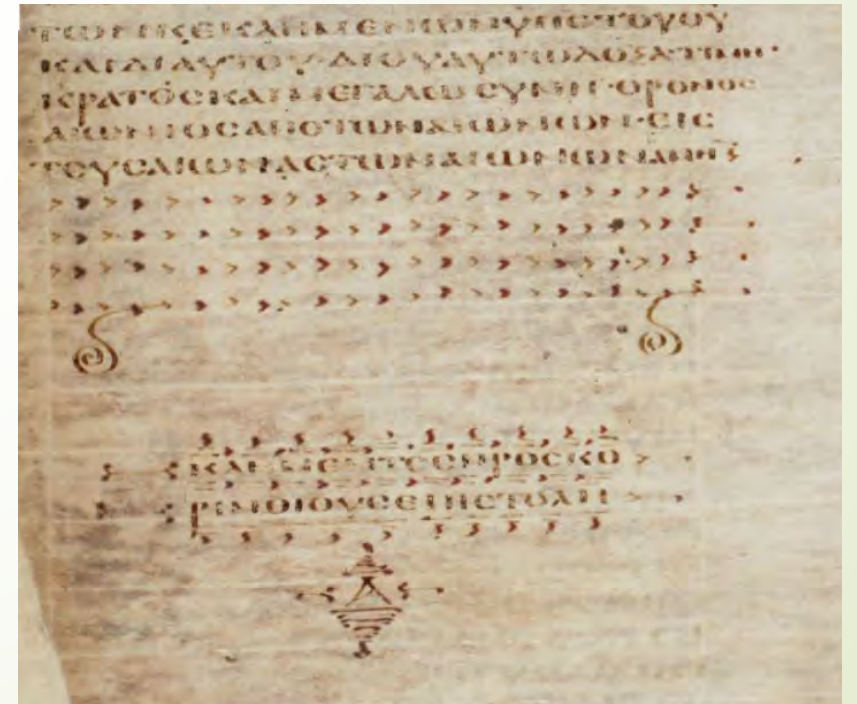 ΤΩΝΚΕΚΛΗΜΕΝΩΝΥΠΟΤΟΥΘΥ
ΚΑΙΔΙΑΥΤΟΥ·ΔΙΟΥΑΥΤΩΔΟΞΑΤΙΜΗ·
ΚΡΑΤΟϹΚΑΙΜΕΓΑΛΩϹΥΝΗ·ΘΡΟΝΟϹ
ΑΙΩΝΙΟϹΑΠΟΤΩΝΑΙΩΝΩΝ·ΕΙϹ
ΤΟΥϹΑΙΩΝΑϹΤΩΝΑΙΩΝΩΝΑΜΗΝ
ΚΛΗΜΕΝΤΟϹΠΡΟϹΚΟ
ΡΙΝΘΙΟΥϹΕΠΙϹΤΟΛΗ
Α